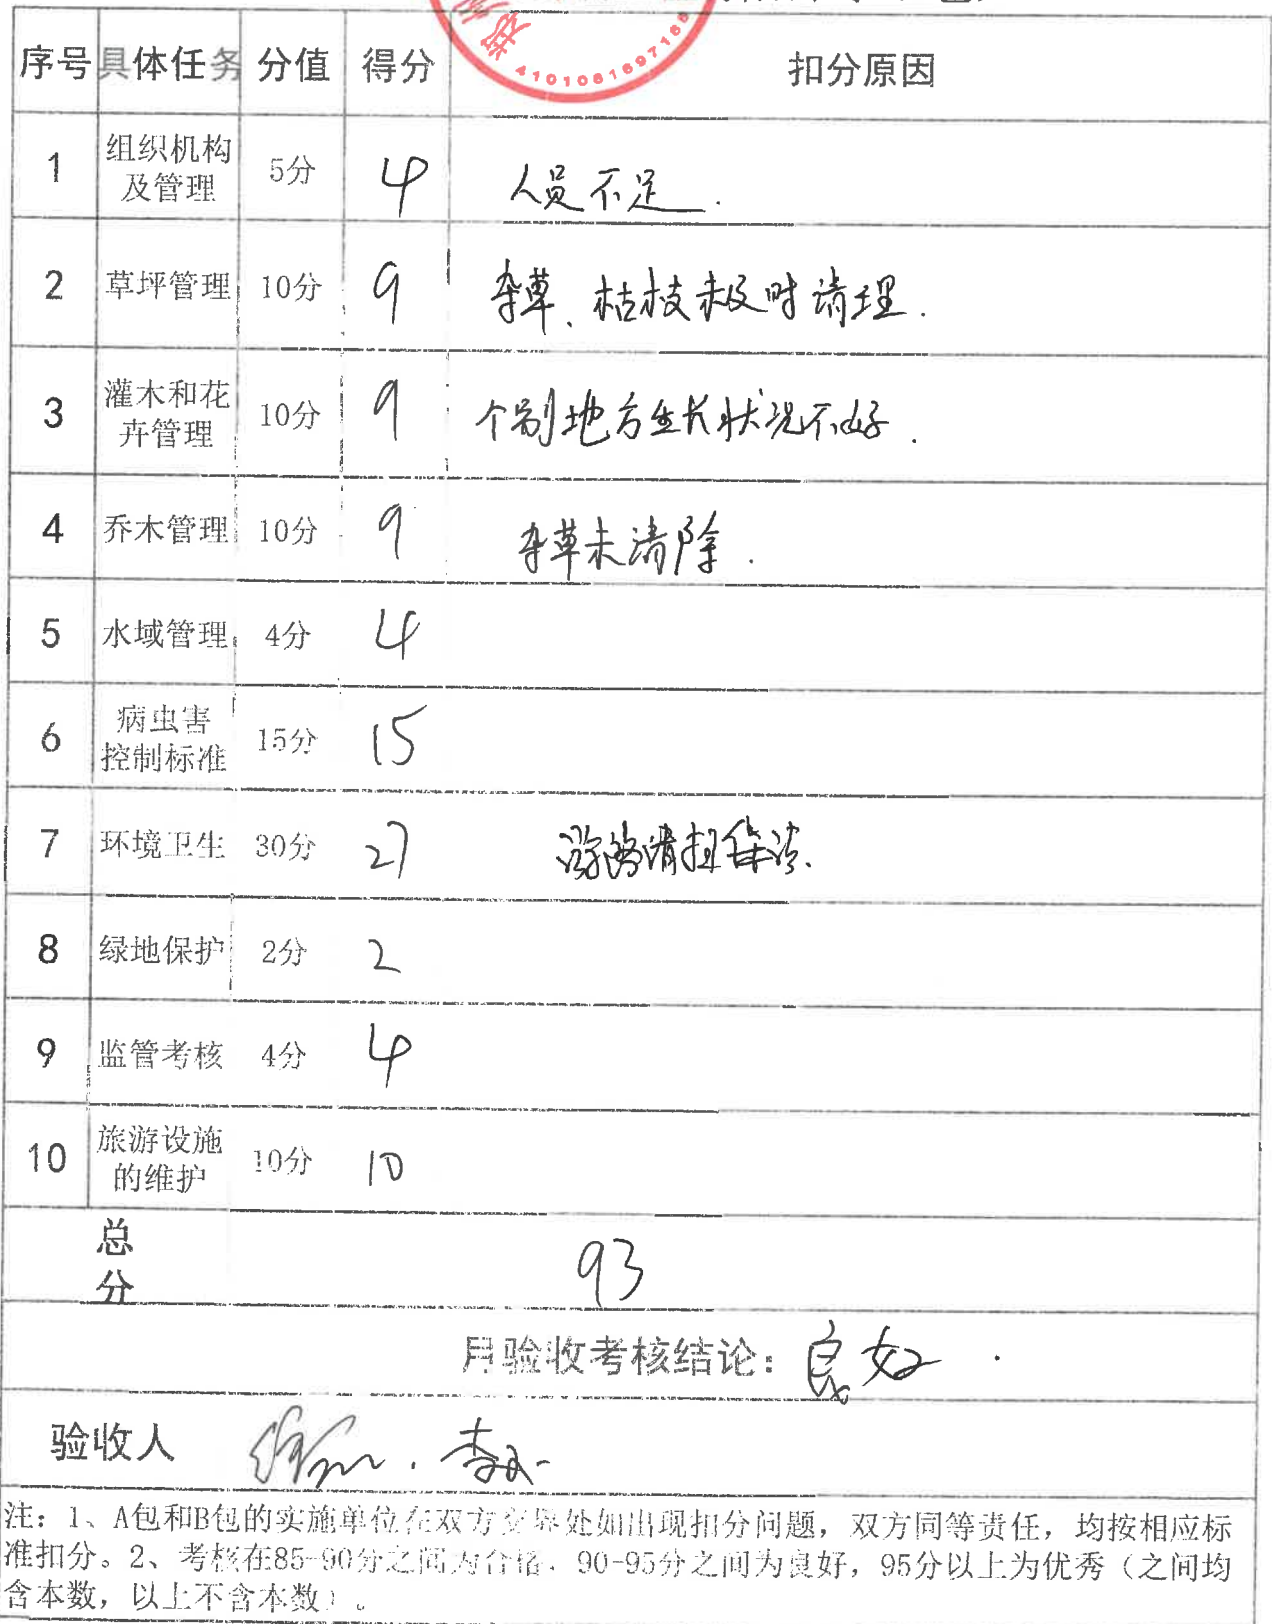 4101081697188
序号 具体任务 分值 得分 扣分原因
1 组织机构及管理 5分 4 人员不足.
2 草坪管理 10分 9 杂草、枯枝未及时清理.
3 灌木和花卉管理 10分 9 个别地方生长状况不好.
4 乔木管理 10分 9 杂草未清除.
5 水域管理 4分 4
6 病虫害控制标准 15分 15
7 环境卫生 30分 27
8 绿地保护 2分 2
9 监管考核 4分 4
10 旅游设施的维护 10分 10
总分 93
月验收考核结论：良好.
验收人
注：1、A包和B包的实施单位在双方交界处如出现扣分问题，双方同等责任，均按相应标
准扣分。2、考核在85-90分之间为合格，90-95分之间为良好，95分以上为优秀（之间均
含本数，以上不含本数）。